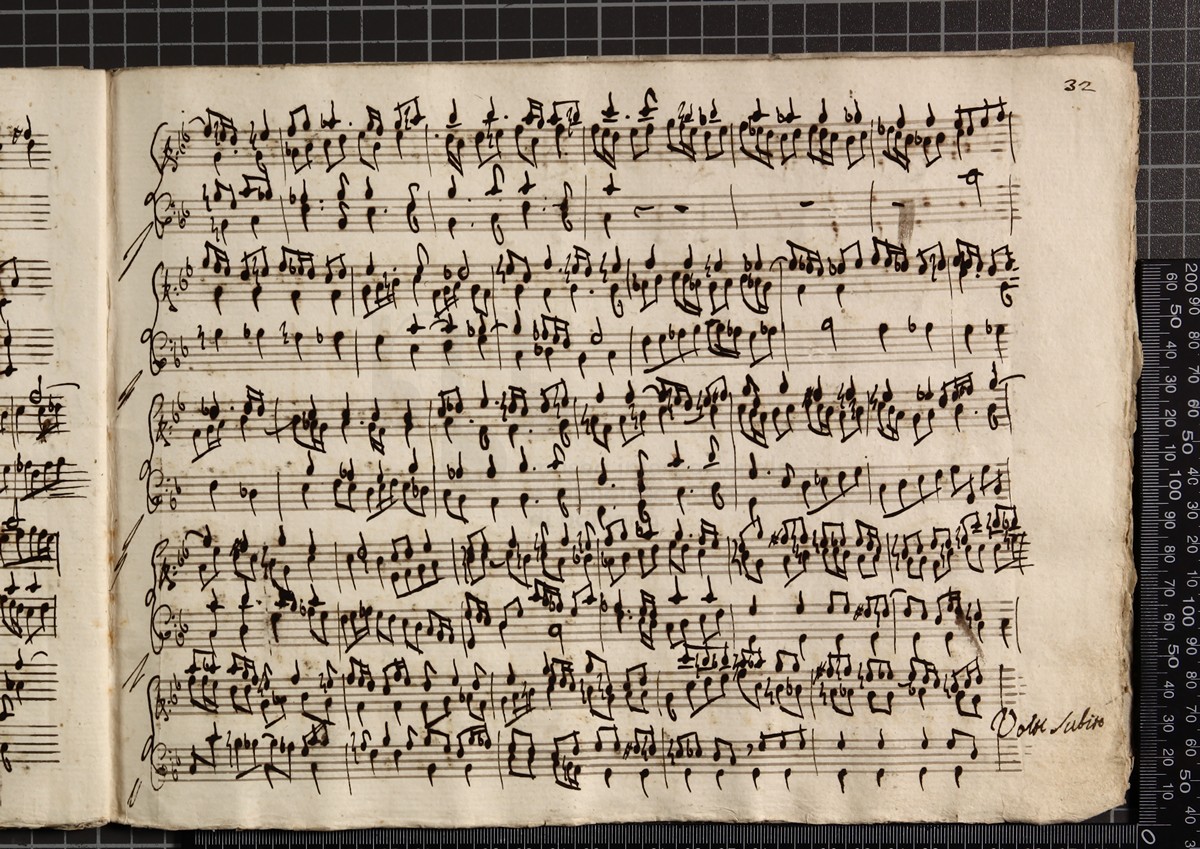 32
Volti Subito
200
90
80
70
60
50
40
30
20
10
100
90
80
70
60
50
40
30
20
10
100
90
80
70
60
50
40
60
50
40
30
20
10
100
90
80
70
60
50
40
30
20
10
0